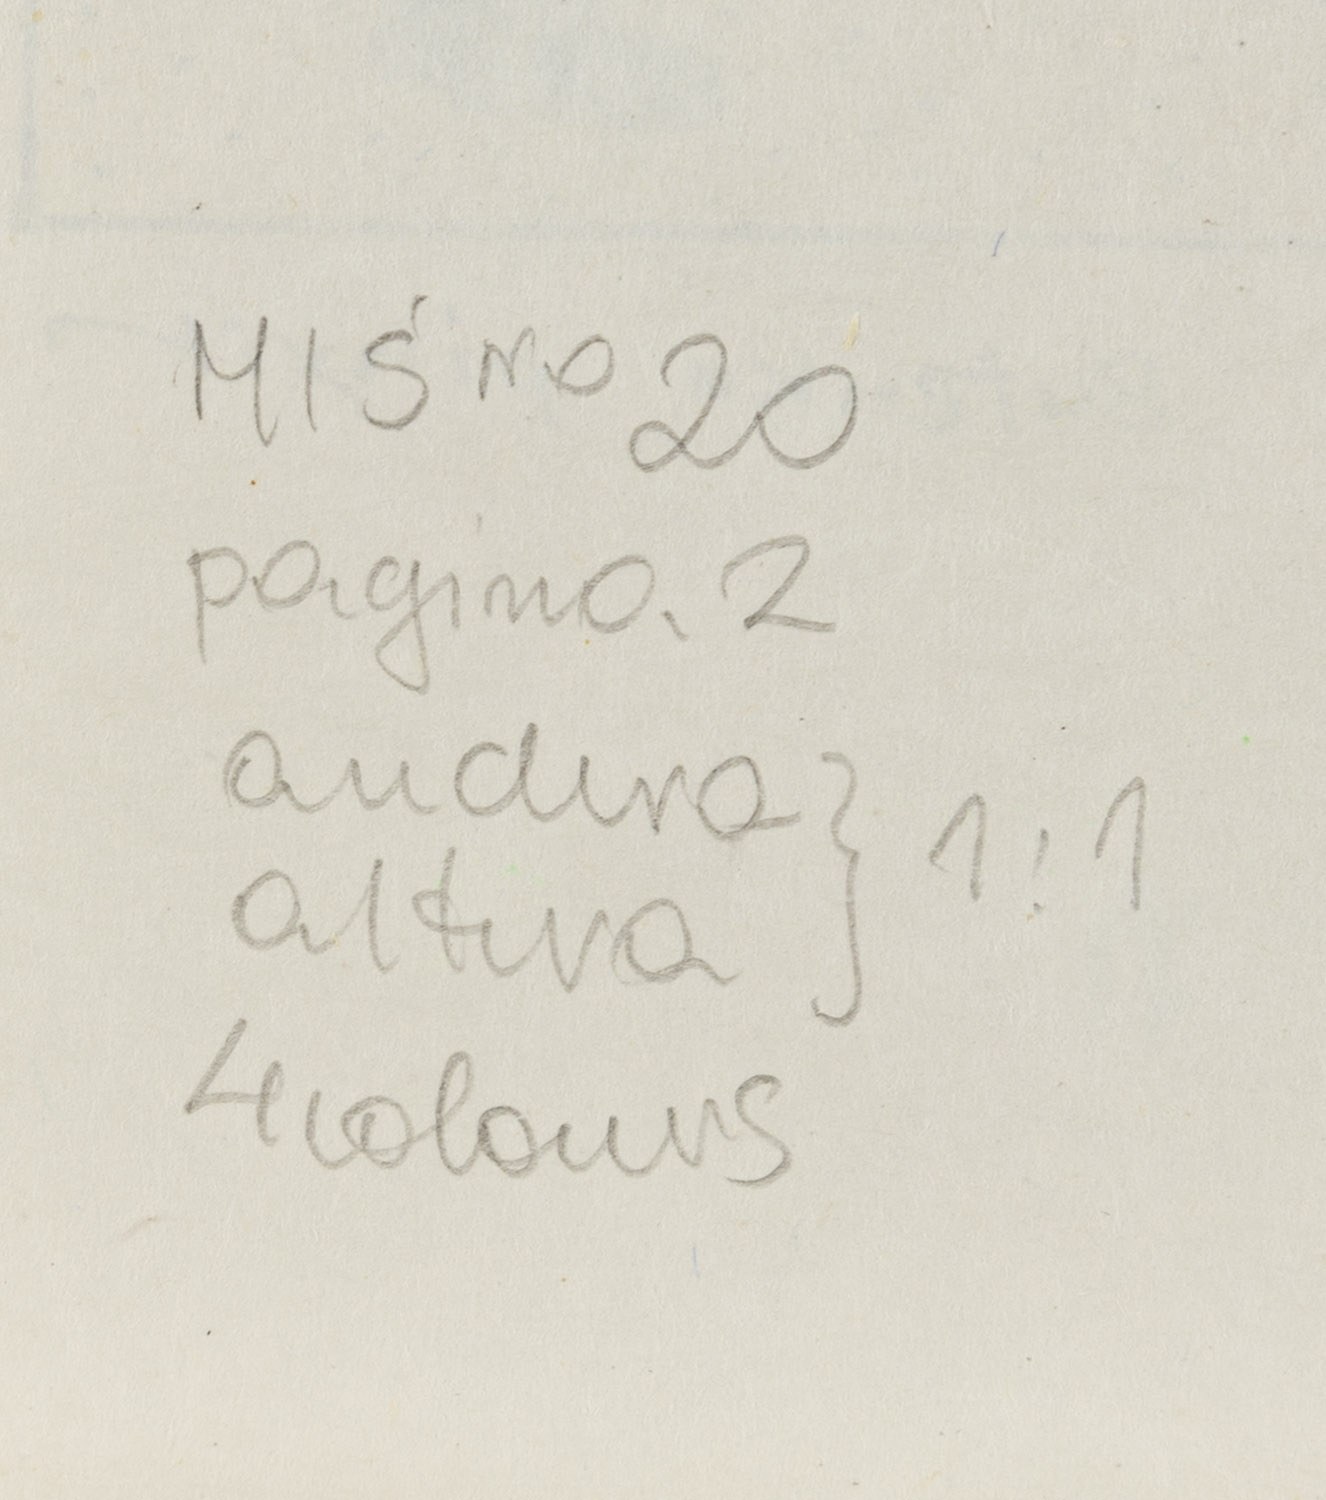 MIŚ no 20
pagina 2
andura } 1:1
altura
4 colours